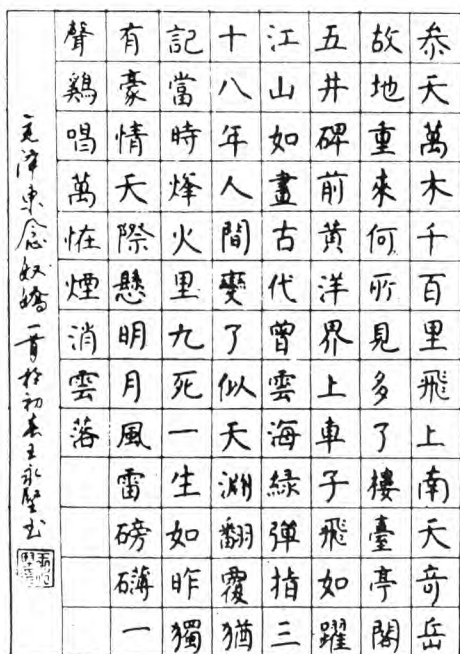 叅天萬木千百里飛上南天竒岳
故地重來何所見多了樓臺亭閣
五井碑前黄洋界上車子飛如躍
江山如畫古代曾雲海綠彈指三
十八年人間變了似天淵翻覆猶
記當時烽火里九死一生如昨獨
有豪情天際懸明月風雷磅礴一
聲鷄唱萬怪煙消雲落
毛澤東念奴嬌一首於初春王永堅书